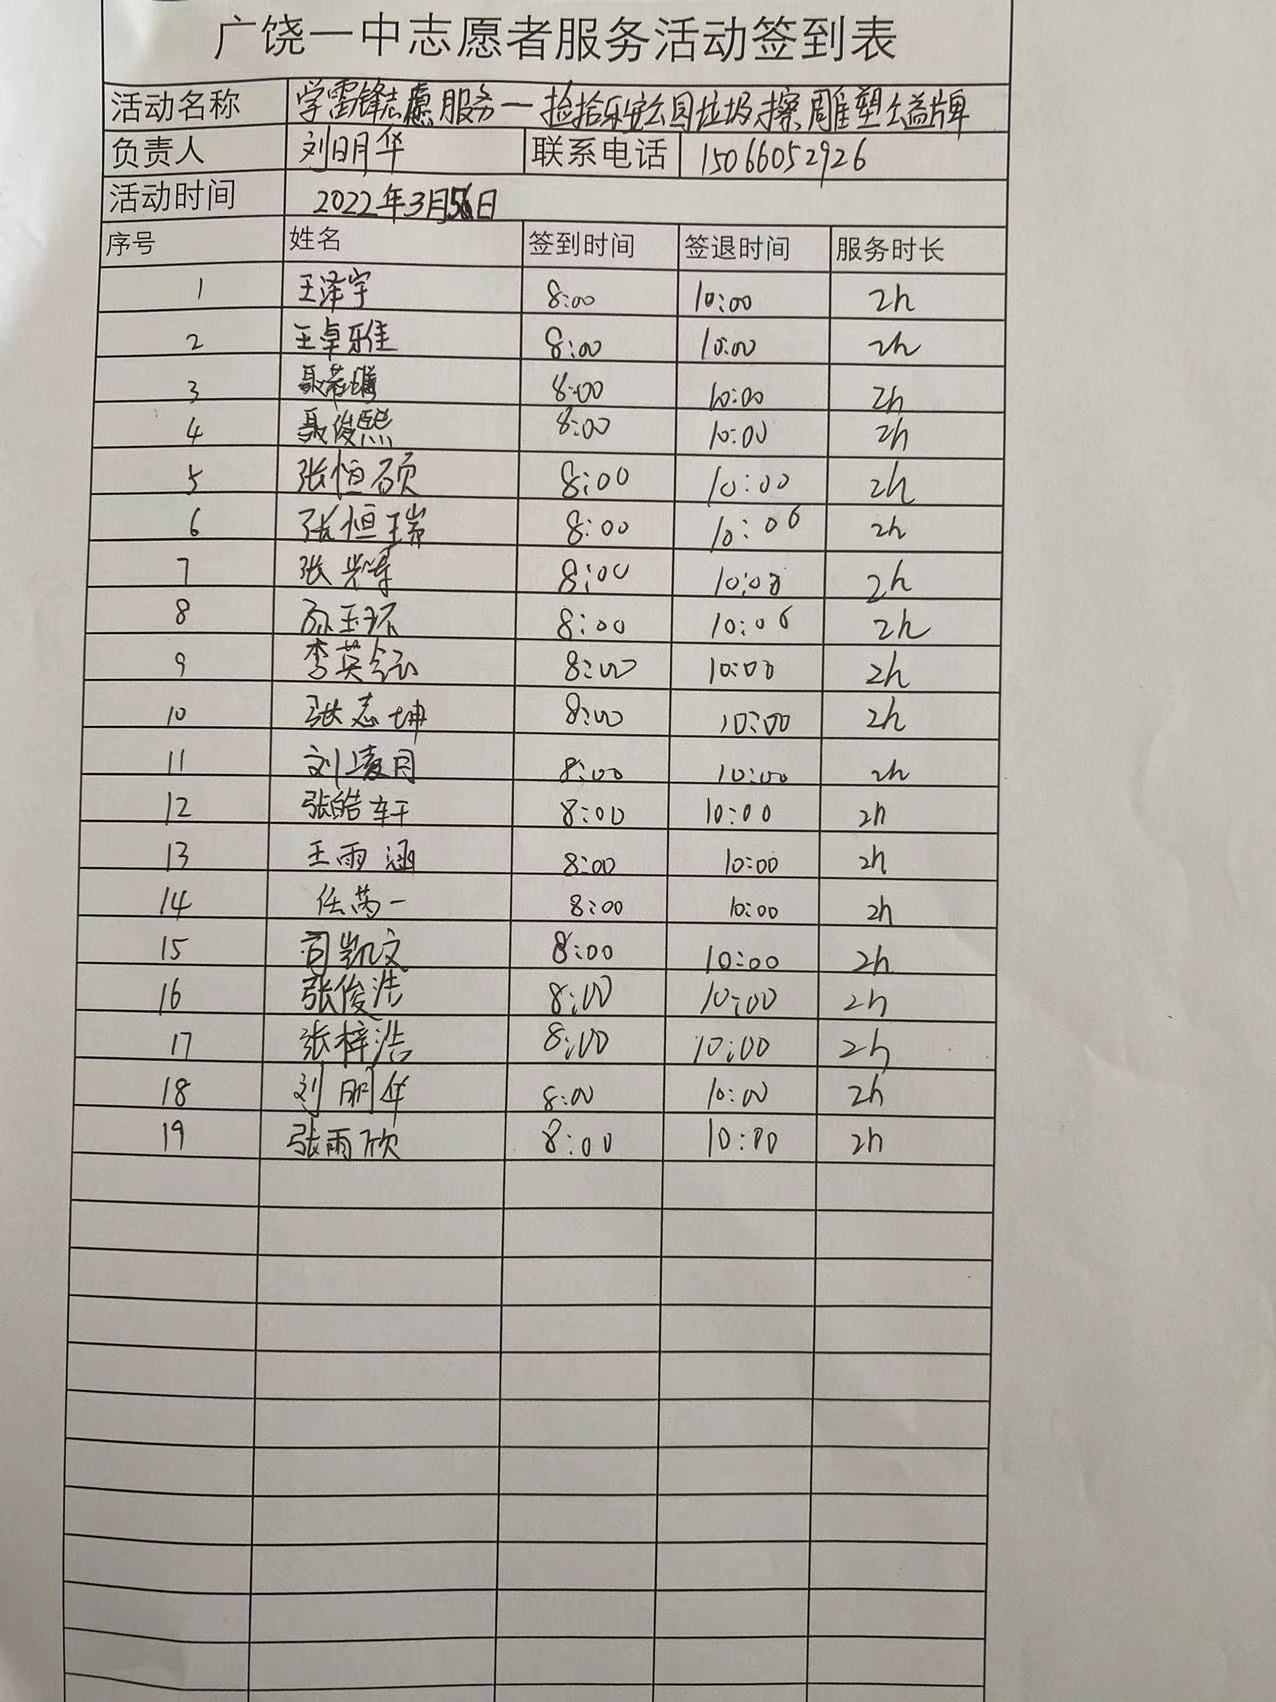 广饶一中志愿者服务活动签到表
活动名称 学雷锋志愿服务一捡拾乐安公园垃圾擦雕塑公益牌
负责人 刘明华 联系电话 15066052926
活动时间 2022年3月56日
序号 姓名 签到时间 签退时间 服务时长
1 王泽宇 8:00 10:00 2h
2 王卓雅 8:00 10:00 2h
3 8:00 10:00 2h
4 聂俊熙 8:00 10:00 2h
5 张恒硕 8:00 10:00 2h
6 张恒瑞 8:00 10:00 2h
7 张 8:00 10:00 2h
8 孙玉环 8:00 10:00 2h
9 李英 8:00 10:00 2h
10 张志坤 8:00 10:00 2h
11 刘凌月 8:00 10:00 2h
12 张皓轩 8:00 10:00 2h
13 王雨涵 8:00 10:00 2h
14 任芮一 8:00 10:00 2h
15 司凯文 8:00 10:00 2h
16 张俊浩 8:00 10:00 2h
17 张梓浩 8:00 10:00 2h
18 刘明华 8:00 10:00 2h
19 张雨欣 8:00 10:00 2h